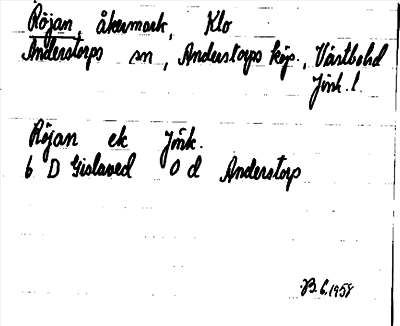 Röjan, åkermark, Klo
Anderstorps sn, Anderstorps köp., Västbo hd
Jönk. l.
Röjan ek Jönk.
6 D Gislaved 0 d Anderstorp
B. 6. 1958